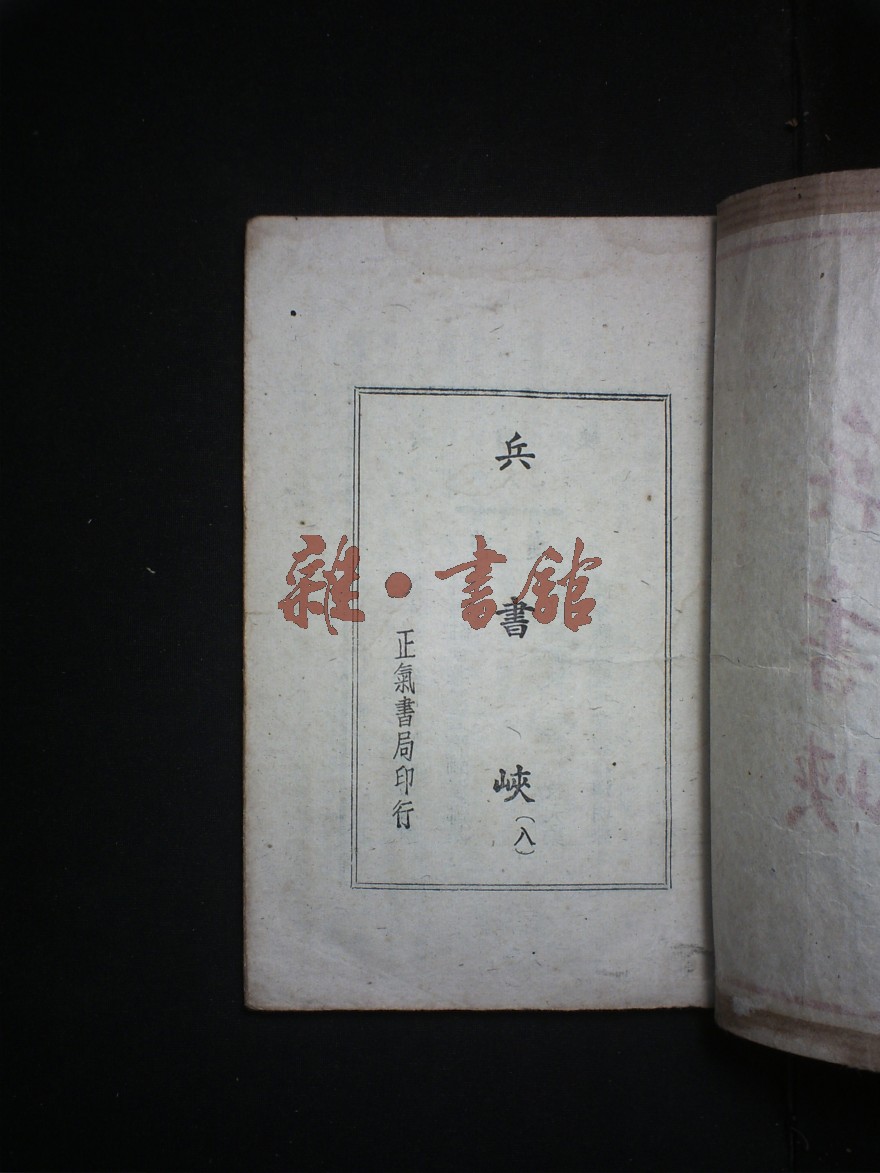 兵書峽（八）
正氣書局印行
雜·書館